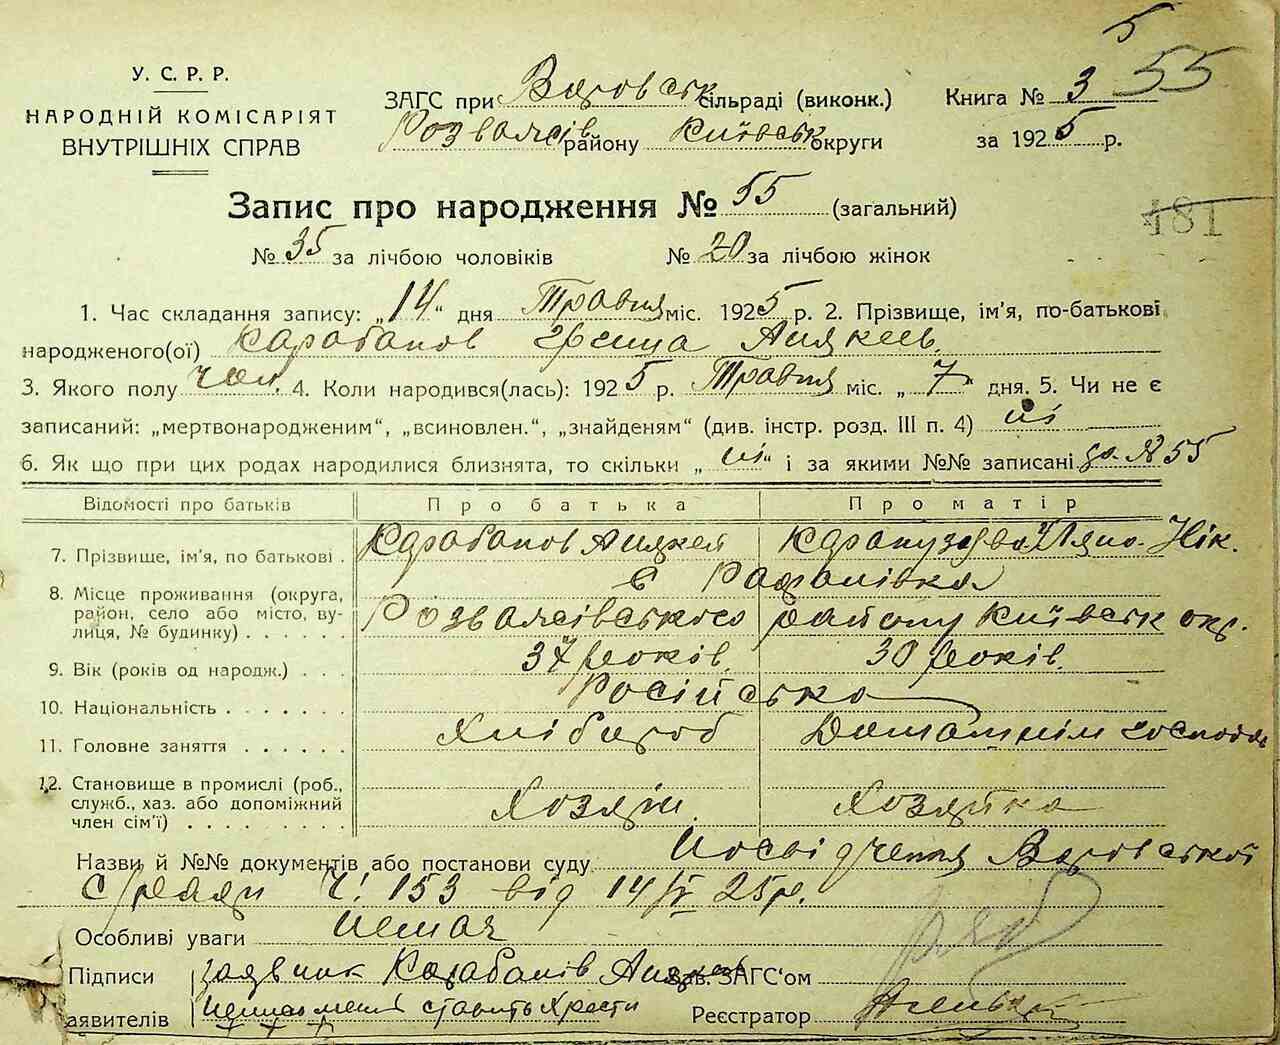 5
55
У. С. Р. Р.
НАРОДНІЙ КОМІСАРІЯТ
ВНУТРІШНІХ СПРАВ
ЗАГС при Варовськ сільраді (виконк.) Книга № 3
Розважів району Київськ округи за 1925 р.
Запис про народження № 55 (загальний)
181
№ 35 за лічбою чоловіків № 20 за лічбою жінок
1. Час складання запису: „14“ дня Травня міс. 1925 р. 2. Прізвище, ім'я, по-батькові
народженого(ої) Карабанов
3. Якого полу чол. 4. Коли народився(лась): 1925 р. Травня міс. „7 дня. 5. Чи не є
записаний: „мертвонародженим“, „всиновлен.“, „знайденям“ (див. інстр. розд. III п. 4) ні
6. Як що при цих родах народилися близнята, то скільки „ні“ і за якими №№ записані за № 55
Відомості про батьків Про батька Про матір
7. Прізвище, ім'я, по батькові . Карабанов Нік.
8. Місце проживання (округа,
район, село або місто, вулиця, № будинку) . . . . . . Розважівського району Київськ окр.
9. Вік (років од народж.) . . . 37 років. 30 років.
10. Національність . . . . . . . Російська
11. Головне заняття . . . . . . Хлібороб Домашнім господ
12. Становище в промислі (роб.,
служб., хаз. або допоміжний
член сім'ї) . . . . . . . . Хозяїн. Хозяйка
Назви й №№ документів або постанови суду Посвідчення Варовської
с/ради Ч! 153 від 14/V 25р.
Особливі уваги немає
Підписи заявник Карабанів Зав. ЗАГС'ом
аявителів ставить хрести Реєстратор